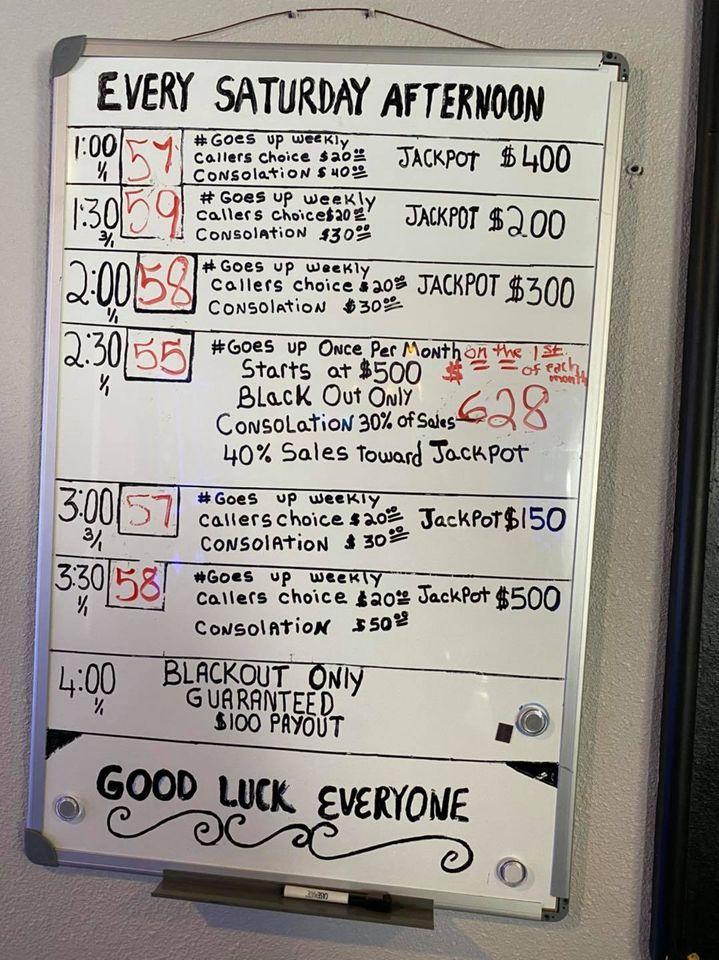 EVERY SATURDAY AFTERNOON
1:00 57 #Goes up weekly
1/1 Callers choice $20.00 JACKPOT $400
Consolation $40.00
1:30 59 #Goes up weekly
3/1 Callers choice $20.00 JACKPOT $200
Consolation $30.00
2:00 58 #Goes up weekly
1/1 Callers choice $20.00 JACKPOT $300
Consolation $30.00
2:30 55 #Goes up Once Per Month on the 1st
1/1 Starts at $500 of each month
Black Out Only $628
Consolation 30% of Sales
40% Sales toward Jackpot
3:00 57 #Goes up weekly
3/1 callers choice $20.00 Jackpot $150
Consolation $30.00
3:30 58 #Goes up weekly
1/1 Callers choice $20.00 Jackpot $500
Consolation $50.00
4:00 BLACKOUT ONLY
1/1 GUARANTEED
$100 PAYOUT
GOOD LUCK EVERYONE